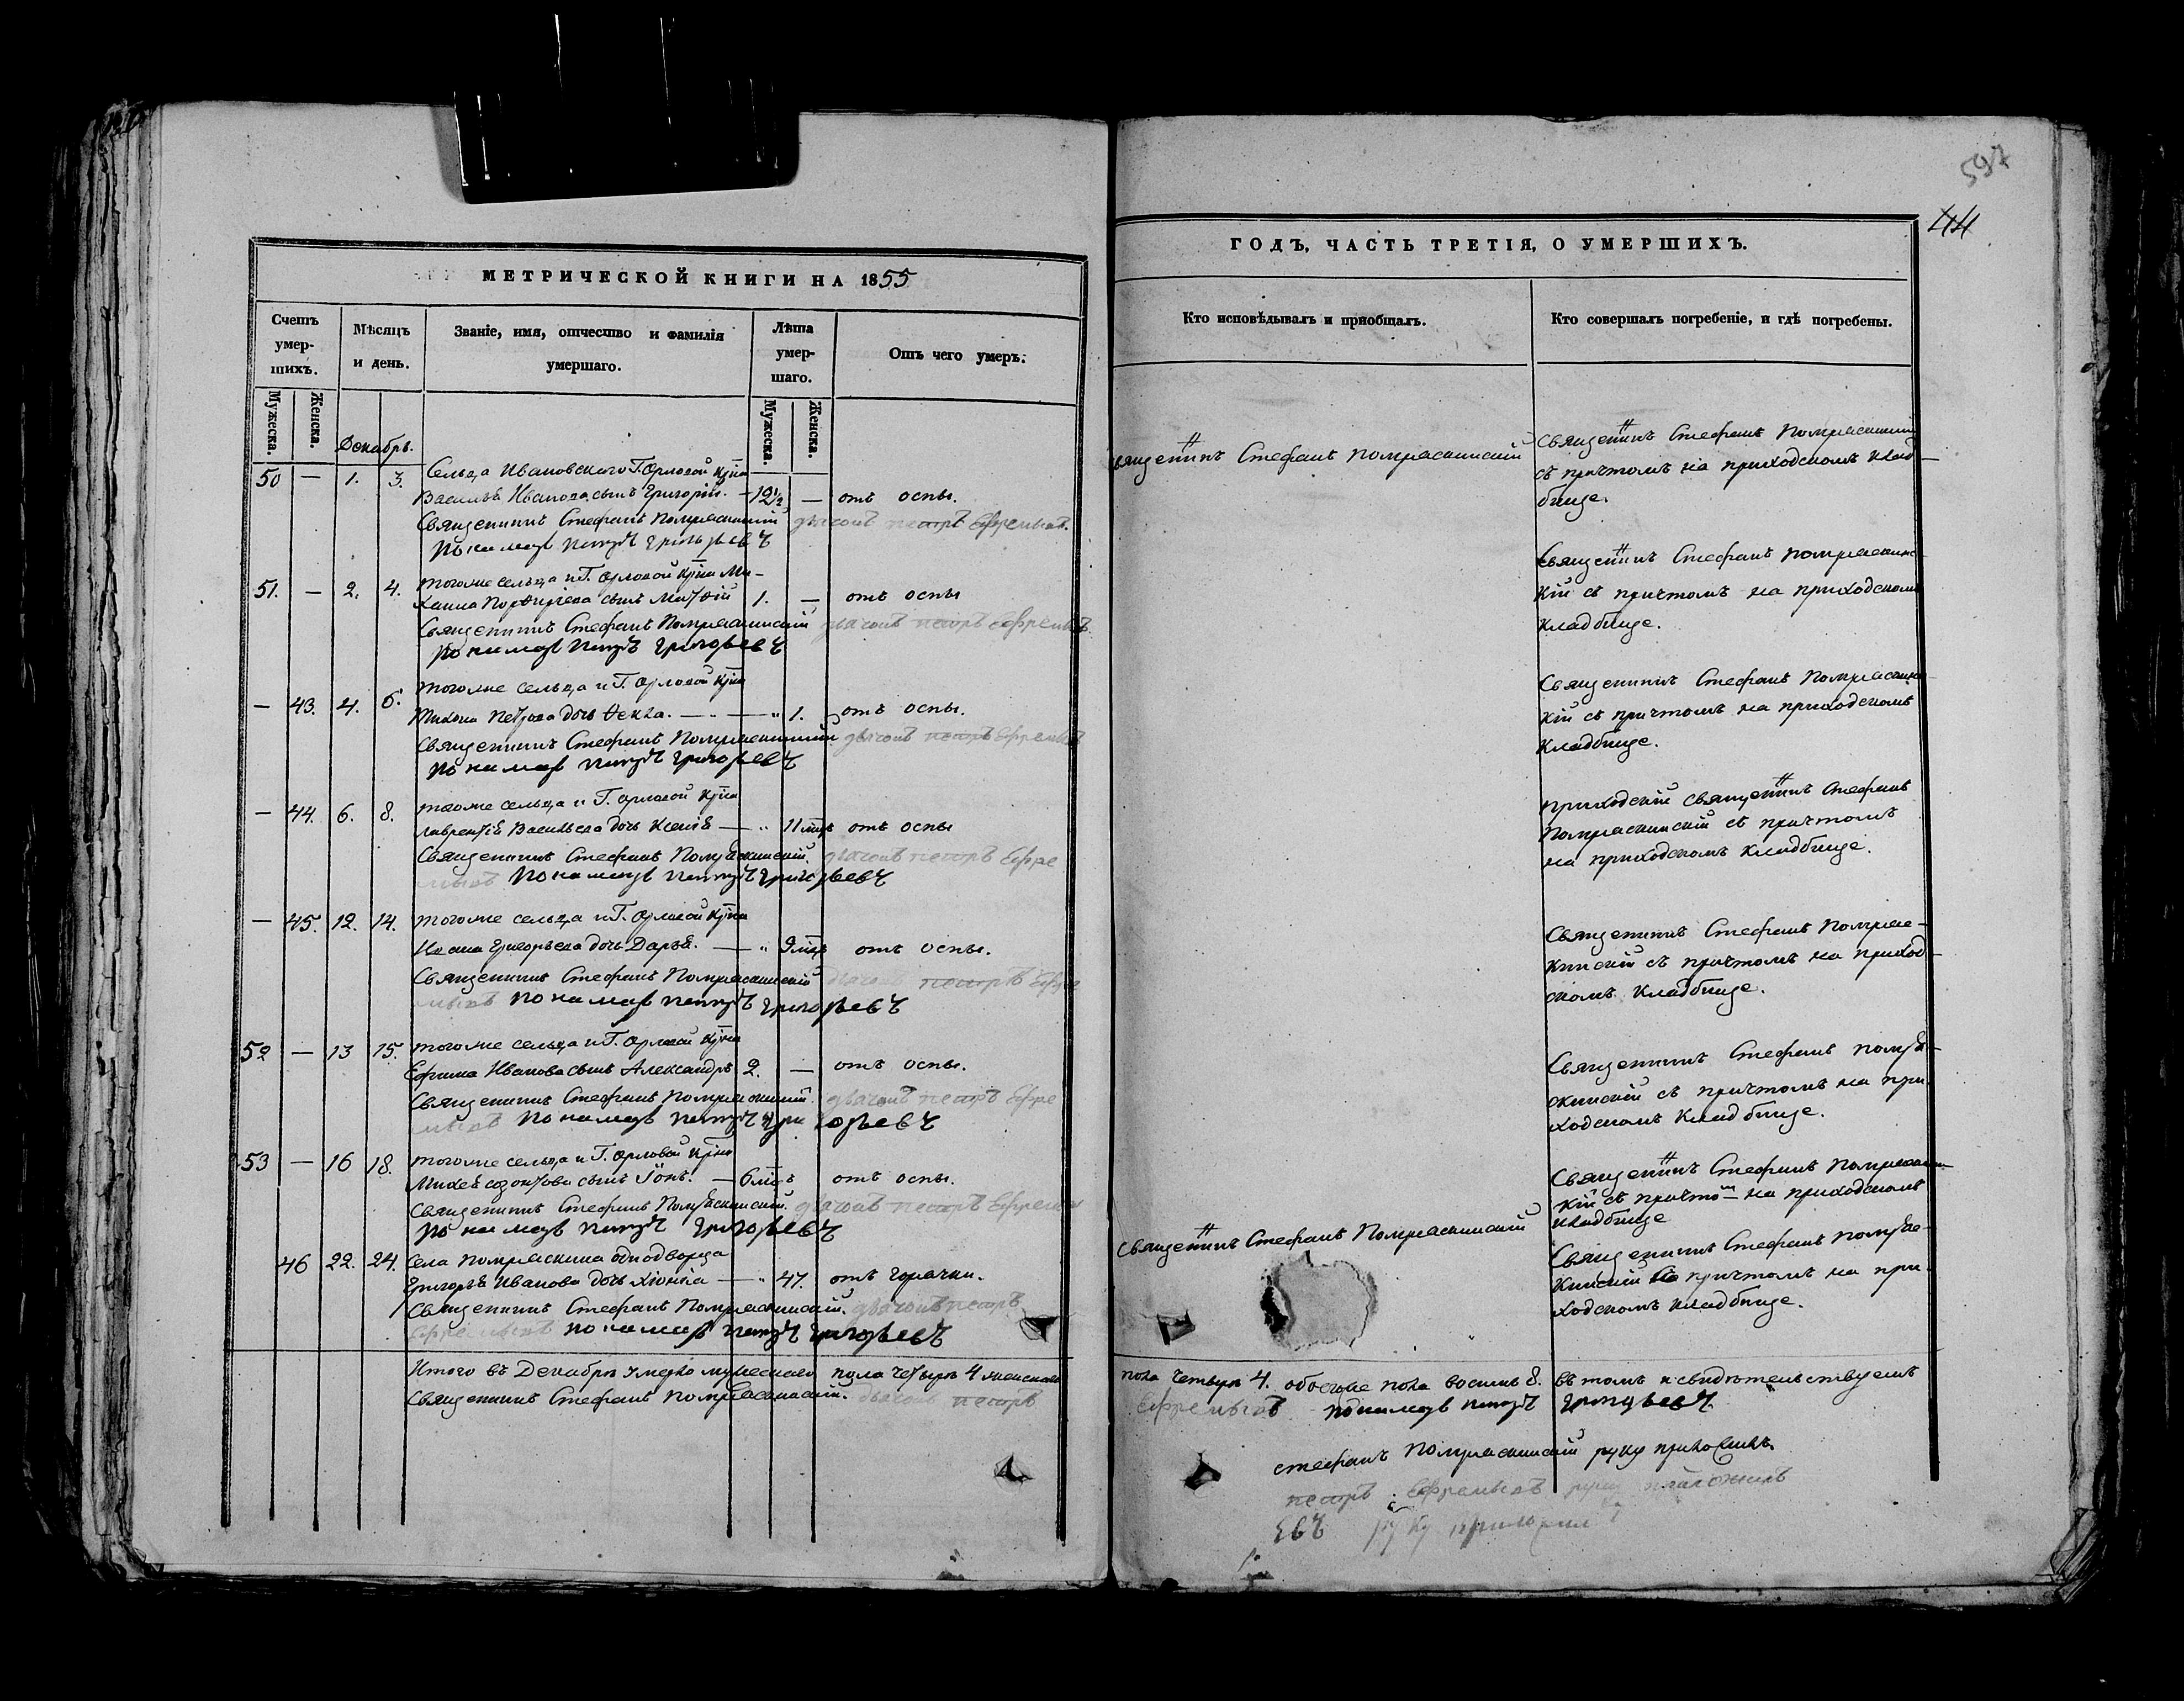 597
44
МЕТРИЧЕСКОЙ КНИГИ НА 1855
Счетъ умершихъ.
Мужеска.
Женска.
Мѣсяцъ и день.
Званіе, имя, отчество и фамилія умершаго.
Лѣта умершаго.
Мужеска.
Женска.
Отъ чего умеръ.
Декабрь.
50 — 1. 3. Сельца Ивановскаго Г. Орловой
Василья Иванова сынъ Григорій. — 2½ — отъ оспы.
Священникъ Стефанъ Помряскинскій дьячокъ петръ Ефремовъ.
Пономарь Петръ Григорьевъ
51. — 2. 4. тогоже сельца и Г. Орловой
сынъ 1. — отъ оспы
Священникъ Стефанъ Помряскинскій дьячокъ петръ Ефремовъ
Пономарь Петръ Григорьевъ
— 43. 4. 6. тогоже сельца и Г. Орловой
Тихона Петрова дочь Ѳекла. — 1. отъ оспы.
Священникъ Стефанъ Помряскинскій дьячокъ петръ Ефремовъ
Пономарь Петръ Григорьевъ
— 44. 6. 8. тогоже сельца и Г. Орловой
Лаврентія Васильева дочь Ксенія — 11 отъ оспы
Священникъ Стефанъ Помряскинскій. дьячокъ петръ Ефре
мовъ Пономарь Петръ Григорьевъ
— 45. 12. 14. тогоже сельца и Г. Орловой
Григорьева дочь Дарья. — 9 отъ оспы.
Священникъ Стефанъ Помряскинскій дьячокъ петръ Ефре
мовъ Пономарь Петръ Григорьевъ
52 — 13 15. тогоже сельца и Г. Орловой
Ефима Иванова сынъ Александръ 2. — отъ оспы.
Священникъ Стефанъ Помряскинскій. дьячокъ петръ Ефре
мовъ Пономарь Петръ Григорьевъ
53 — 16 18. тогоже сельца и Г. Орловой
сынъ — 6 отъ оспы.
Священникъ Стефанъ Помряскинскій. дьячокъ петръ Ефремовъ
Пономарь Петръ Григорьевъ
46 22. 24. Села Помряскина однодворца
Григорья Иванова дочь — 47. отъ горячки.
Священникъ Стефанъ Помряскинскій. дьячокъ петръ
Ефремовъ Пономарь Петръ Григорьевъ
Итого въ Декабрѣ умерло мужескаго пола четыре 4 женскаго
Священникъ Стефанъ Помряскинскій. дьячокъ петръ
ГОДЪ, ЧАСТЬ ТРЕТІЯ, О УМЕРШИХЪ.
Кто исповѣдывалъ и пріобщалъ.
Кто совершалъ погребеніе, и гдѣ погребены.
Стефанъ Помряскинскій
Священникъ Стефанъ Помряскинскій
съ причтомъ на приходскомъ клад-
бище.
Священникъ Стефанъ Помряскинс-
кій съ причтомъ на приходскомъ
кладбище.
Священникъ Стефанъ Помряскинс-
кій съ причтомъ на приходскомъ
кладбище.
приходскій священникъ Стефанъ
Помряскинскій съ причтомъ
на приходскомъ кладбище.
Священникъ Стефанъ Помряс-
кинскій съ причтомъ на приход-
скомъ кладбище.
Священникъ Стефанъ Помря-
скинскій съ причтомъ на при-
ходскомъ кладбище.
Священникъ Стефанъ Помряскинс-
кій съ причтомъ на приходскомъ
кладбище
Священникъ Стефанъ Помряскинскій
Священникъ Стефанъ Помряс-
кинскій съ причтомъ на при-
ходскомъ кладбище.
пола четыре 4. обоего пола восемь 8. въ томъ и свидѣтельствуемъ
Ефремовъ пономарь петръ Григорьевъ
стефанъ Помряскинскій руку приложилъ.
петръ Ефремовъ руку приложилъ
евъ руку приложилъ